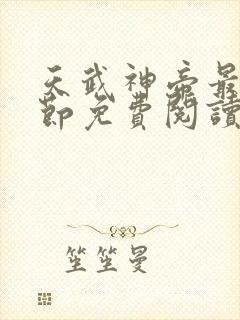 天武神帝最
節免費閱讀
笙笙曼